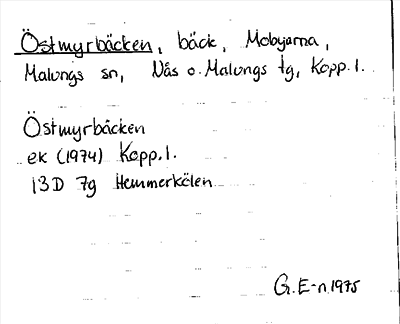 Östmyrbäcken, bäck, Mobyarna,
Malungs sn, Nås o. Malungs tg, Kopp.l.
Östmyrbäcken
ek (1974) Kopp.l.
13D 7g Hemmerkölen
G.E-n 1975